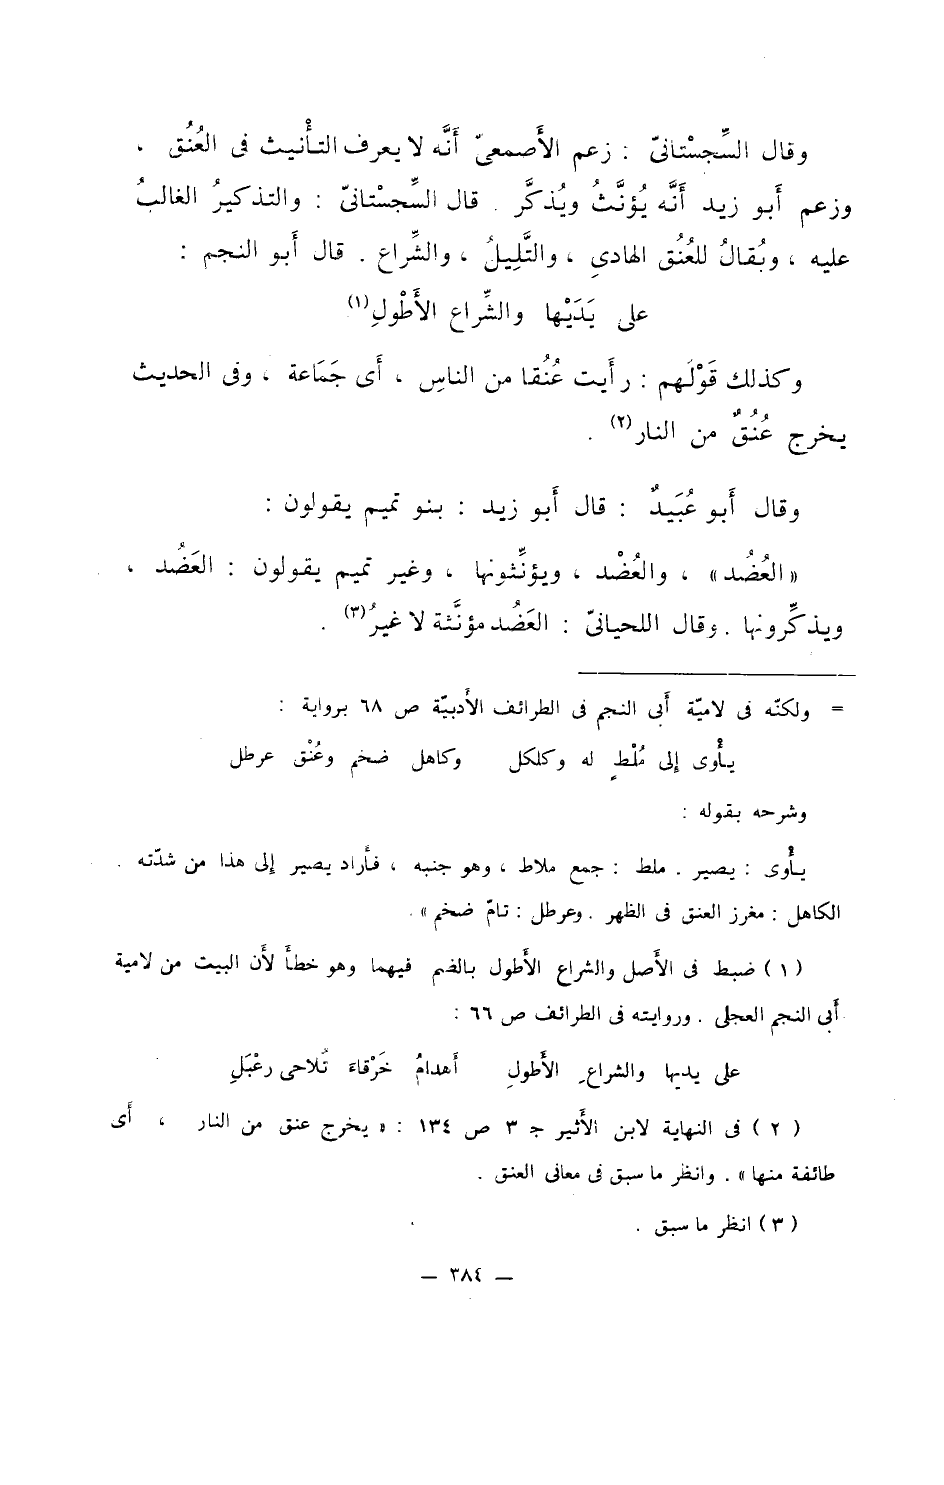 وقال السِّجِسْتانىّ : زعم الأَصمعىّ أَنَّه لا يعرف التـأْنيث فى العُنُق .
وزعم أَبو زيد أَنَّه يُؤنَّثُ ويُذكَّر . قال السِّجِسْتانىّ : والتذكيرُ الغالبُ
عليه ، ويُقالُ للعُنُق الهادى ، والتَّلِيلُ ، والشِّراع . قال أَبو النجم :
على يَدَيْها والشِّراع الأَطْولِ(١)
وكذلك قَوْلَهم : رأَيت عُنُقا من الناسِ ، أَى جَمَاعة ، وفى الحديث
يخرج عُنُقٌ من النار(٢) .
وقال أَبو عُبَيدٌ : قال أَبو زيد : بنو تميم يقولون :
«العُضُد» ، والعُضْد ، ويؤنِّثونها ، وغير تميم يقولون : العَضُد ،
ويذكِّرونها . وقال اللحيانىّ : العَضُد مؤنَّثة لا غيرُ(٣) .
= ولكنّه فى لاميّة أَبى النجم فى الطرائف الأَدبيّة ص ٦٨ برواية :
يأْوى إلى مُلْطٍ له وكلكل وكاهل ضخم وعُنْق عرطل
وشرحه بقوله :
يأْوى : يصير . ملط : جمع ملاط ، وهو جنبه ، فأَراد يصير إلى هذا من شدّته .
الكاهل : مغرز العنق فى الظهر . وعرطل : تامّ ضخم» .
(١) ضبط فى الأَصل والشراع الأَطول بالضم فيهما وهو خطأ لأَن البيت من لامية
أَبى النجم العجلى . وروايته فى الطرائف ص ٦٦ :
على يديها والشراعِ الأَطولِ أَهدامُ خَرْقاءَ تُلاحى رعْبَلِ
(٢) فى النهاية لابن الأَثير جـ ٣ ص ١٣٤ : «يخرج عنق من النار ، أَى
طائفة منها» . وانظر ما سبق فى معانى العنق .
(٣) انظر ما سبق .
— ٣٨٤ —